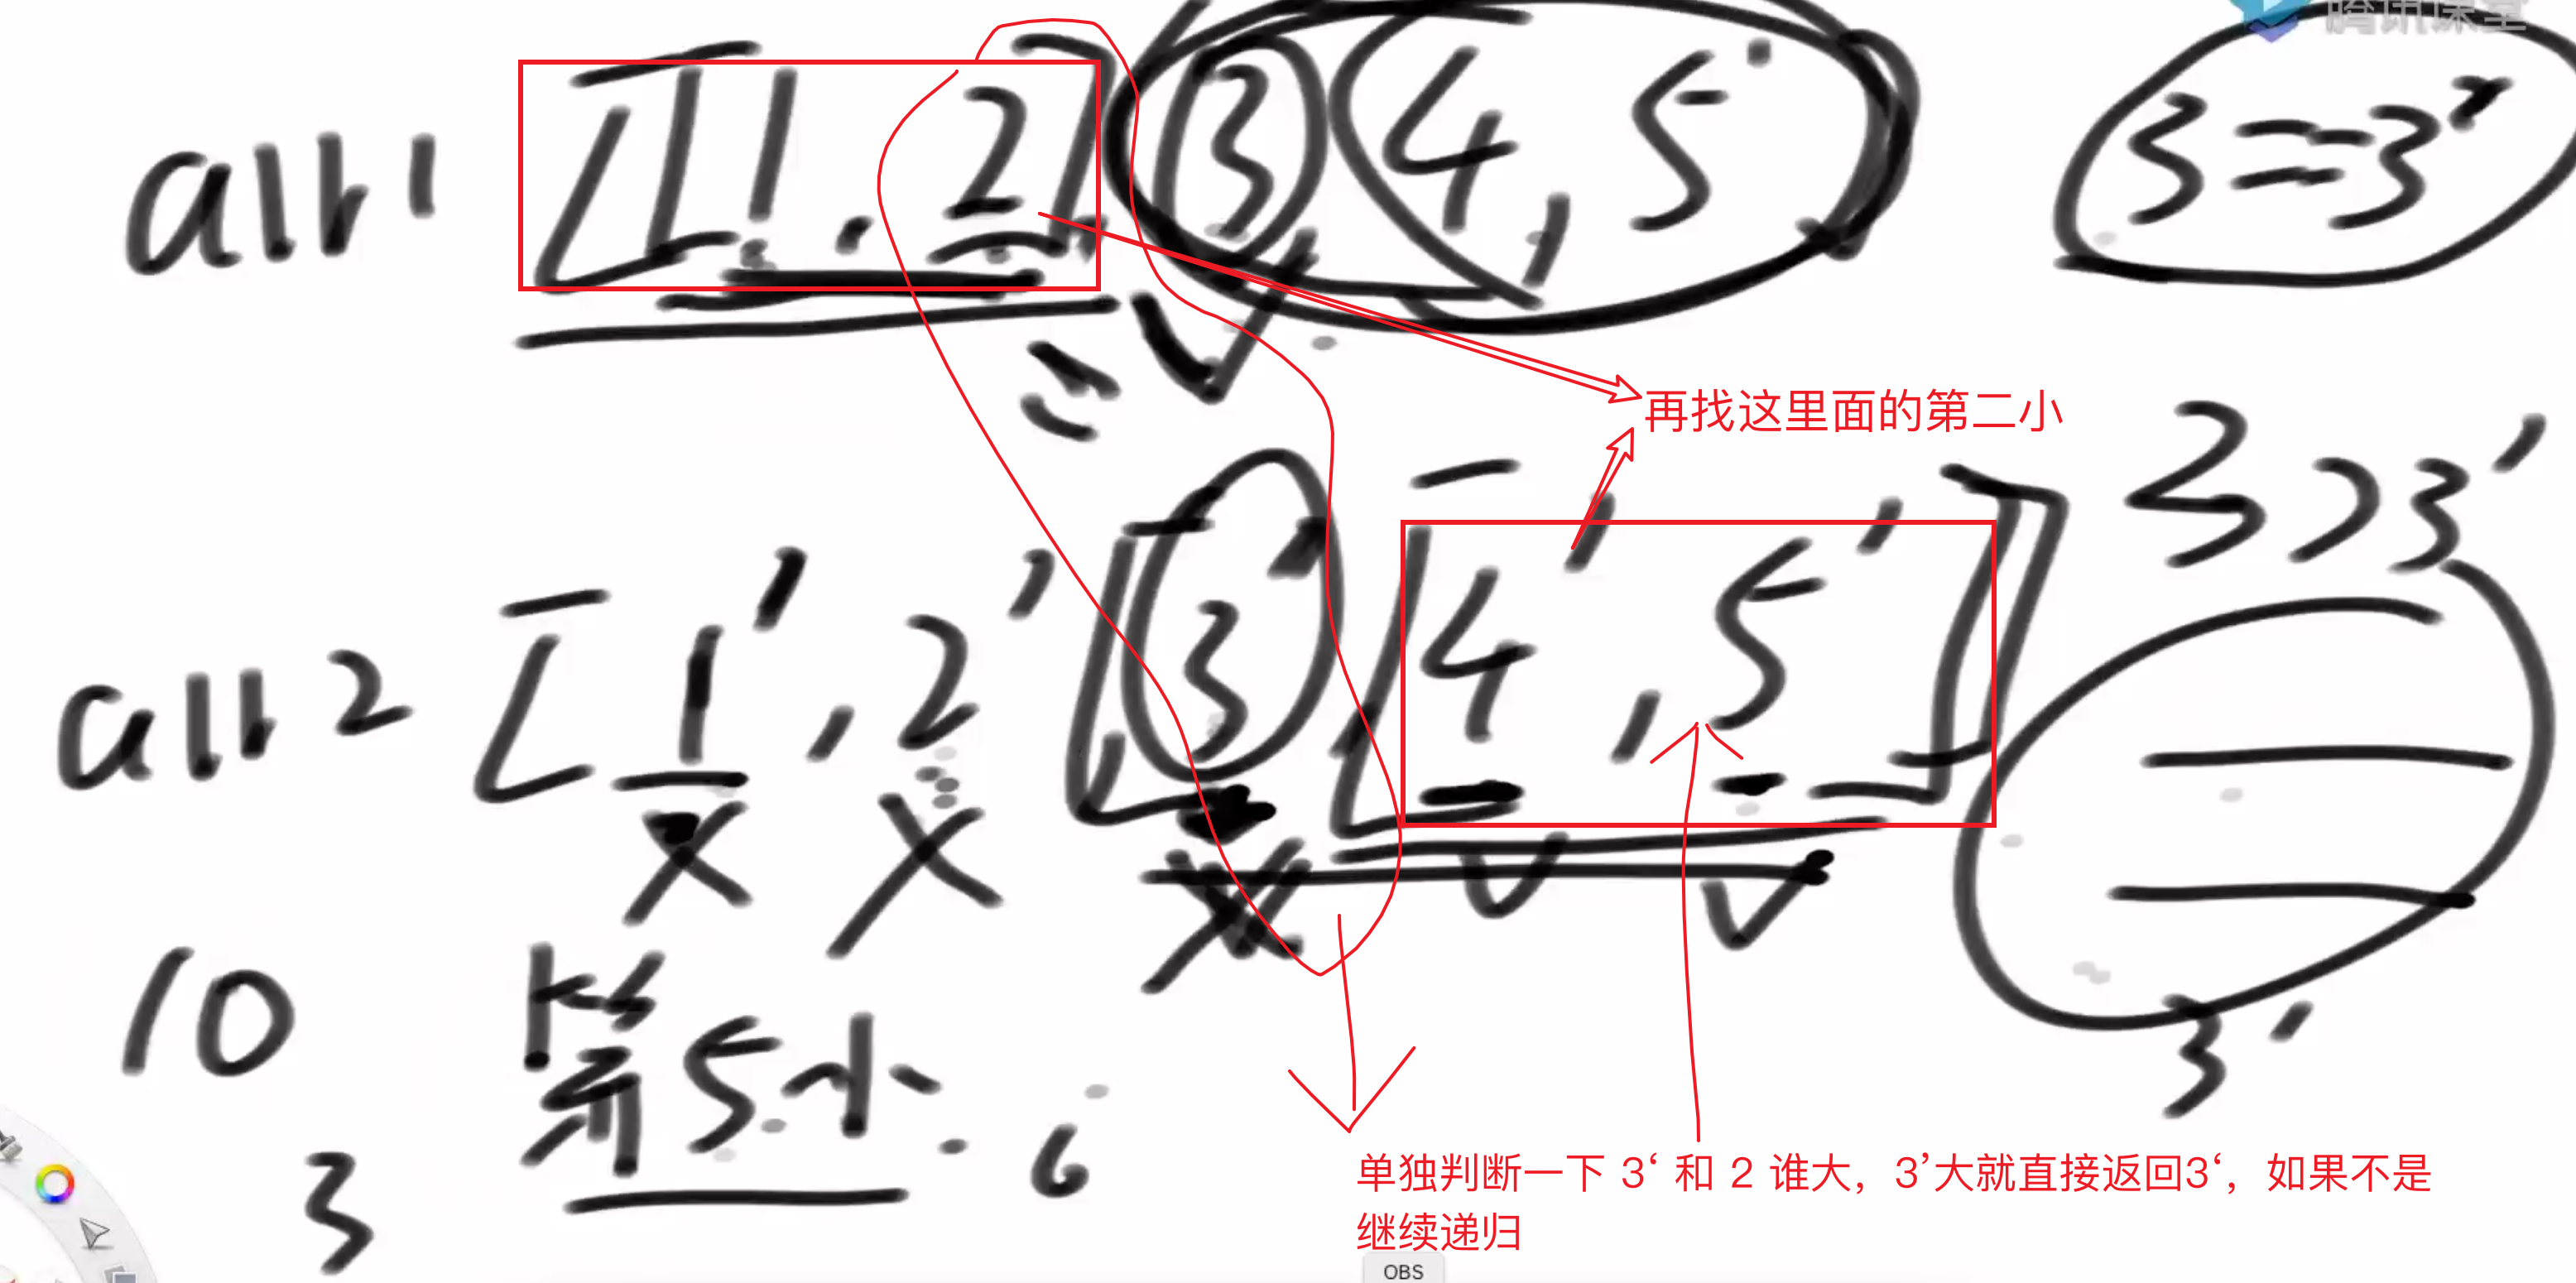 腾讯课堂
arr1 [[1, 2], 3 4, 5
3==3'
再找这里面的第二小
3>3'
arr2 [1', 2' [3' [4', 5']]
10 第5小 6
3'
3
单独判断一下 3‘ 和 2 谁大，3’大就直接返回3‘，如果不是
继续递归
OBS